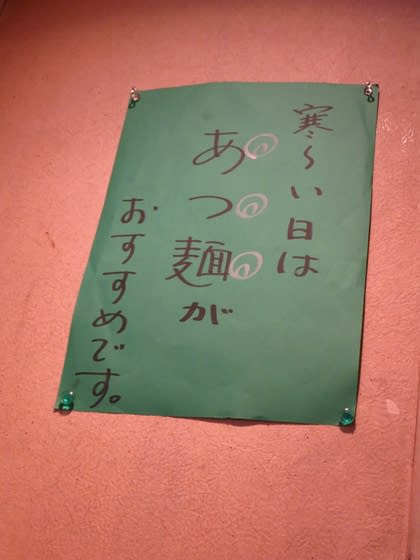 寒〜い日は
あつ麺が
おすすめです。